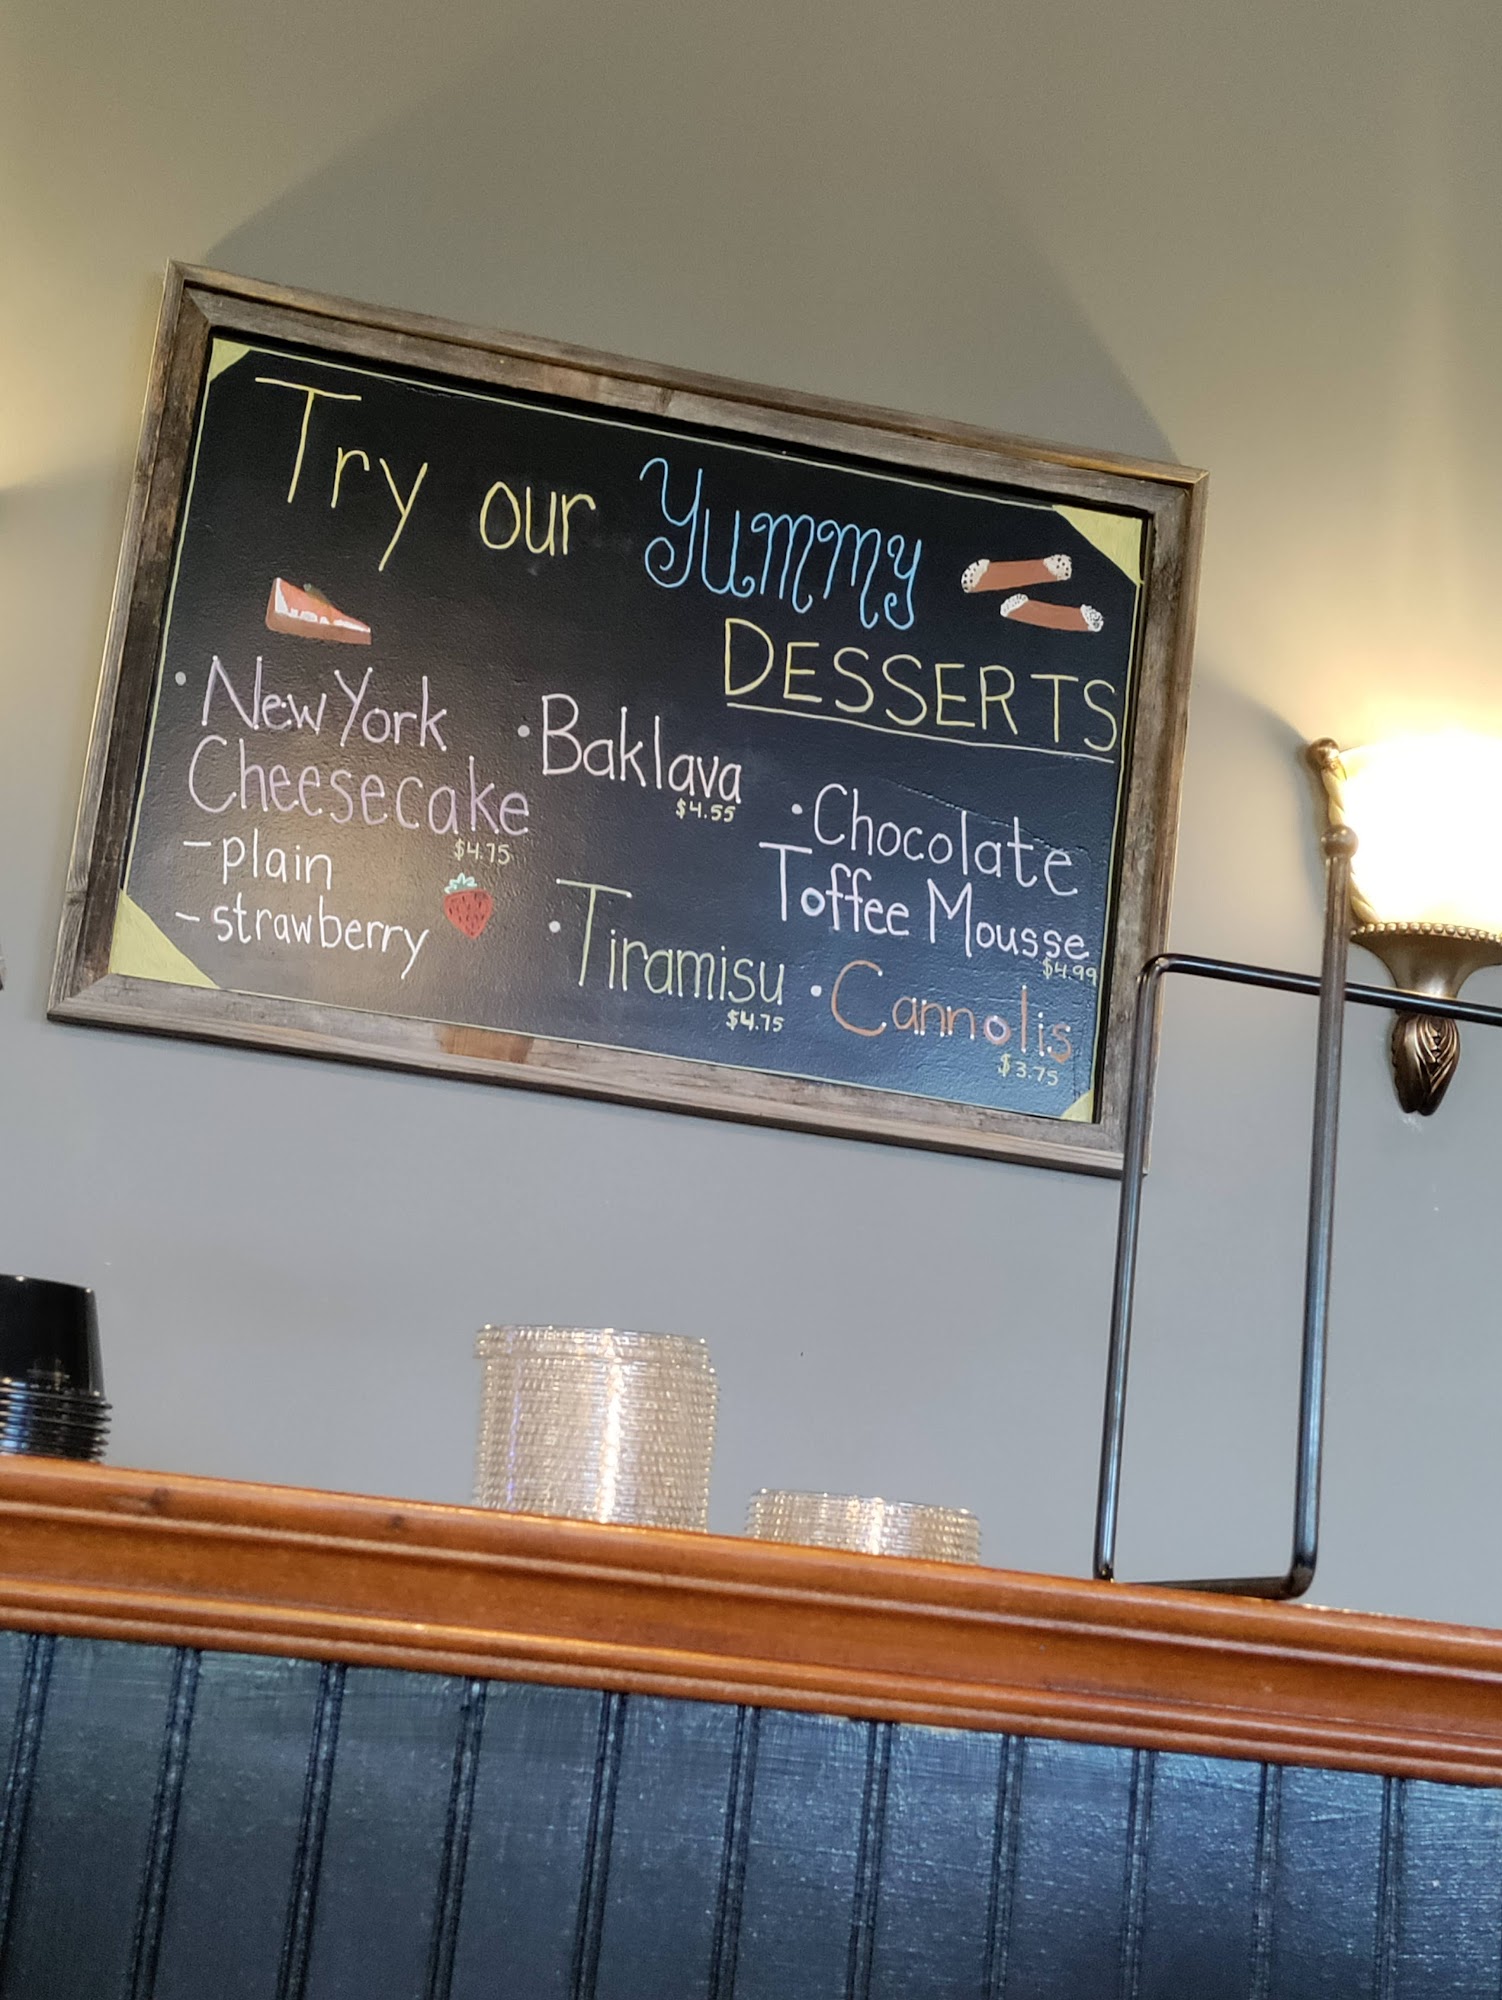 Try our Yummy
DESSERTS
• New York
Cheesecake
$4.75
- plain
- strawberry
• Baklava
$4.55
• Tiramisu
$4.75
• Chocolate
Toffee Mousse
$4.99
• Cannolis
$3.75